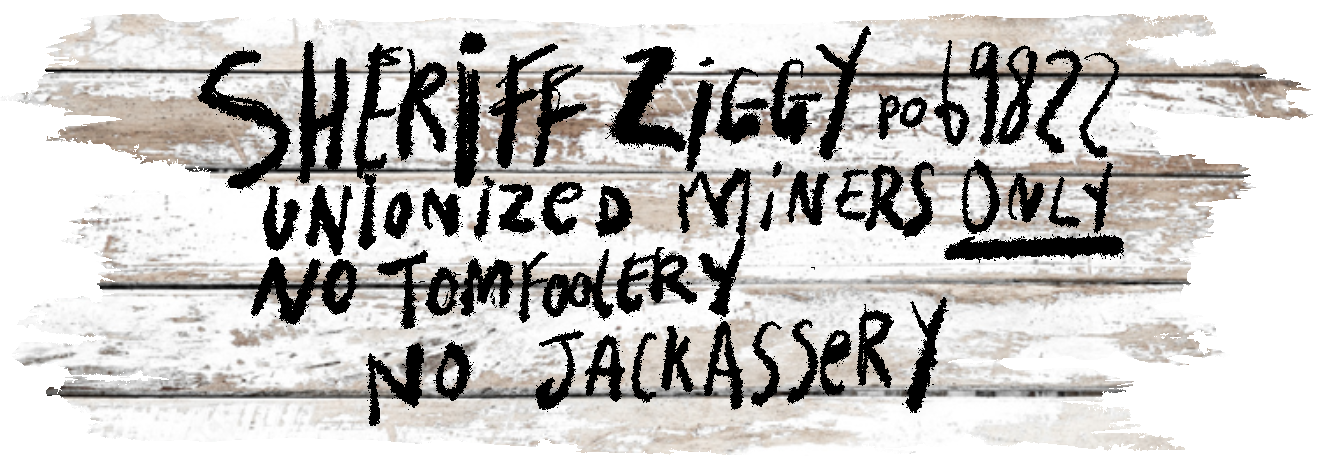 SHERIFF ZiGGY po69822
UNIONiZeD MiNERS ONLY
NO TOMFoolERY
NO JACKASSeRY